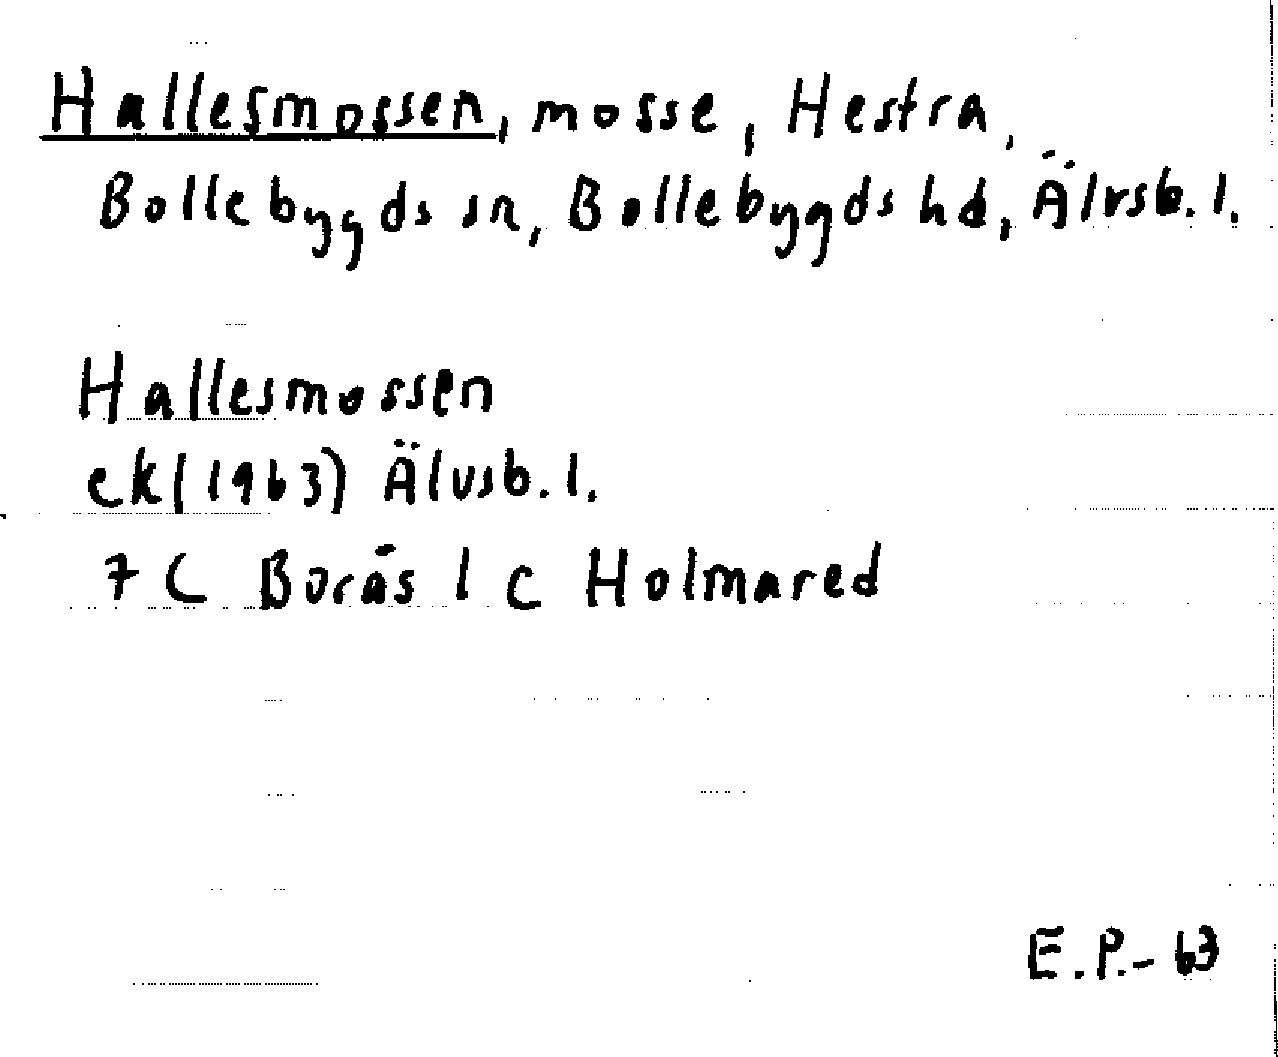 Hallesmossen, mosse, Hestra,
Bollebygds sn, Bollebygds hd, Älvsb. l.
Hallesmossen
ek (1963) Älvsb. l.
7 C Borås 1 c Holmared
E.P.-63